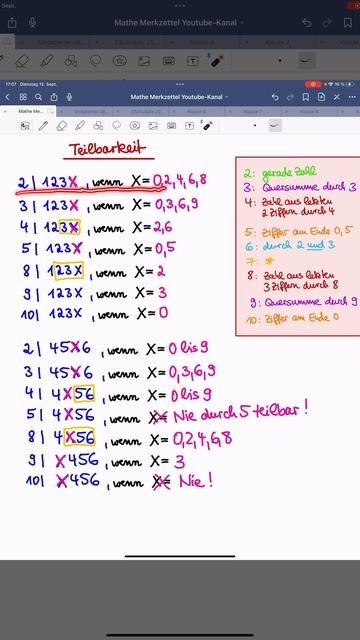 Sept.
Mathe Merkzettel Youtube-Kanal
Klasse 7
17:07 Dienstag 12. Sept.
16 %
Mathe Merkzettel Youtube-Kanal
Mathe Me...
Klasse 7
Teilbarkeit
2 | 123X , wenn X = 0,2,4,6,8
3 | 123X , wenn X = 0,3,6,9
4 | 123X , wenn X = 2,6
5 | 123X , wenn X = 0,5
8 | 123X , wenn X = 2
9 | 123X , wenn X = 3
10 | 123X , wenn X = 0
2: gerade Zahl
3: Quersumme durch 3
4: Zahl aus letzten
2 Ziffern durch 4
5: Ziffer am Ende 0,5
6: durch 2 und 3
7: *
8: Zahl aus letzten
3 Ziffern durch 8
9: Quersumme durch 9
10: Ziffer am Ende 0
2 | 45X6 , wenn X = 0 bis 9
3 | 45X6 , wenn X = 0,3,6,9
4 | 4X56 , wenn X = 0 bis 9
5 | 4X56 , wenn X = Nie durch 5 teilbar !
8 | 4X56 , wenn X = 0,2,4,6,8
9 | X456 , wenn X = 3
10 | X456 , wenn X = Nie !